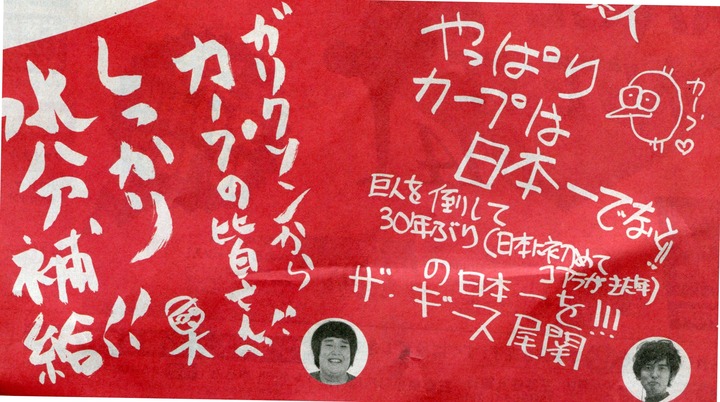 やっぱり
カープは
日本一でないと!!
カープ♡
巨人を倒して
30年ぶり(日本に初めて
コアラが来た年)
の日本一を!!!
ザ・ギース 尾関
ガリクソンから
カープの皆さんへ
しっかり
水分補給!!